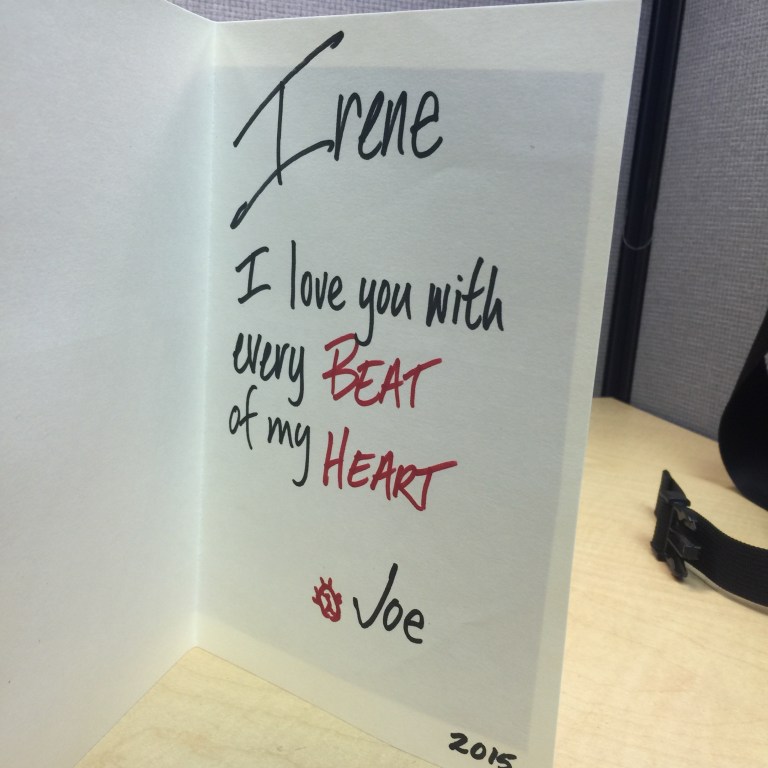 Irene
I love you with
every BEAT
of my HEART
Joe
2015